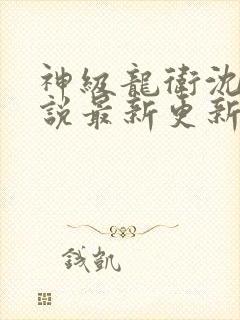 神級龍衛沈
說最新更新
錢凱